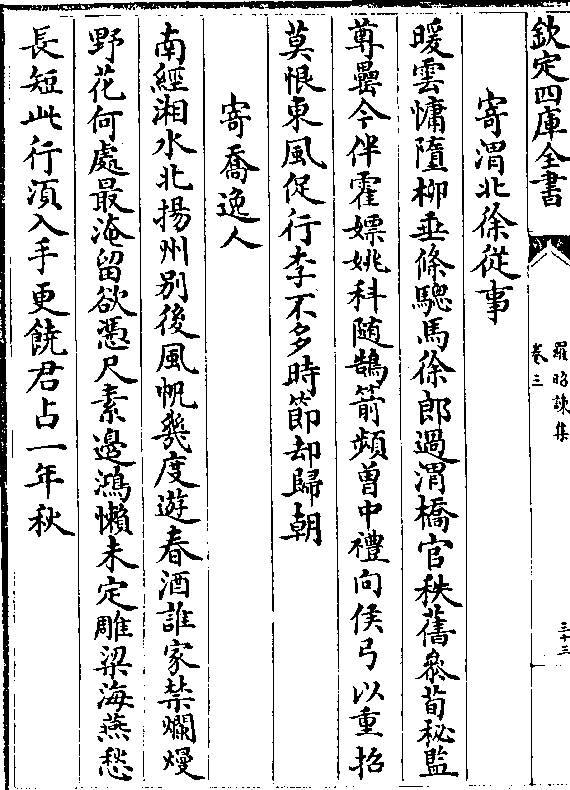 欽定四庫全書
羅昭諫集
卷三
三十三
寄渭北徐從事
暖雲慵墮柳垂條驄馬徐郎過渭橋官秩舊叅荀秘監
尊罍今伴霍嫖姚科隨鵠箭頻曾中禮向侯弓以重招
莫恨東風促行李不多時節却歸朝
寄喬逸人
南經湘水北揚州别後風帆幾度遊春酒誰家禁爛熳
野花何處最淹留欲憑尺素邊鴻懶未定雕梁海燕愁
長短此行須入手更饒君占一年秋